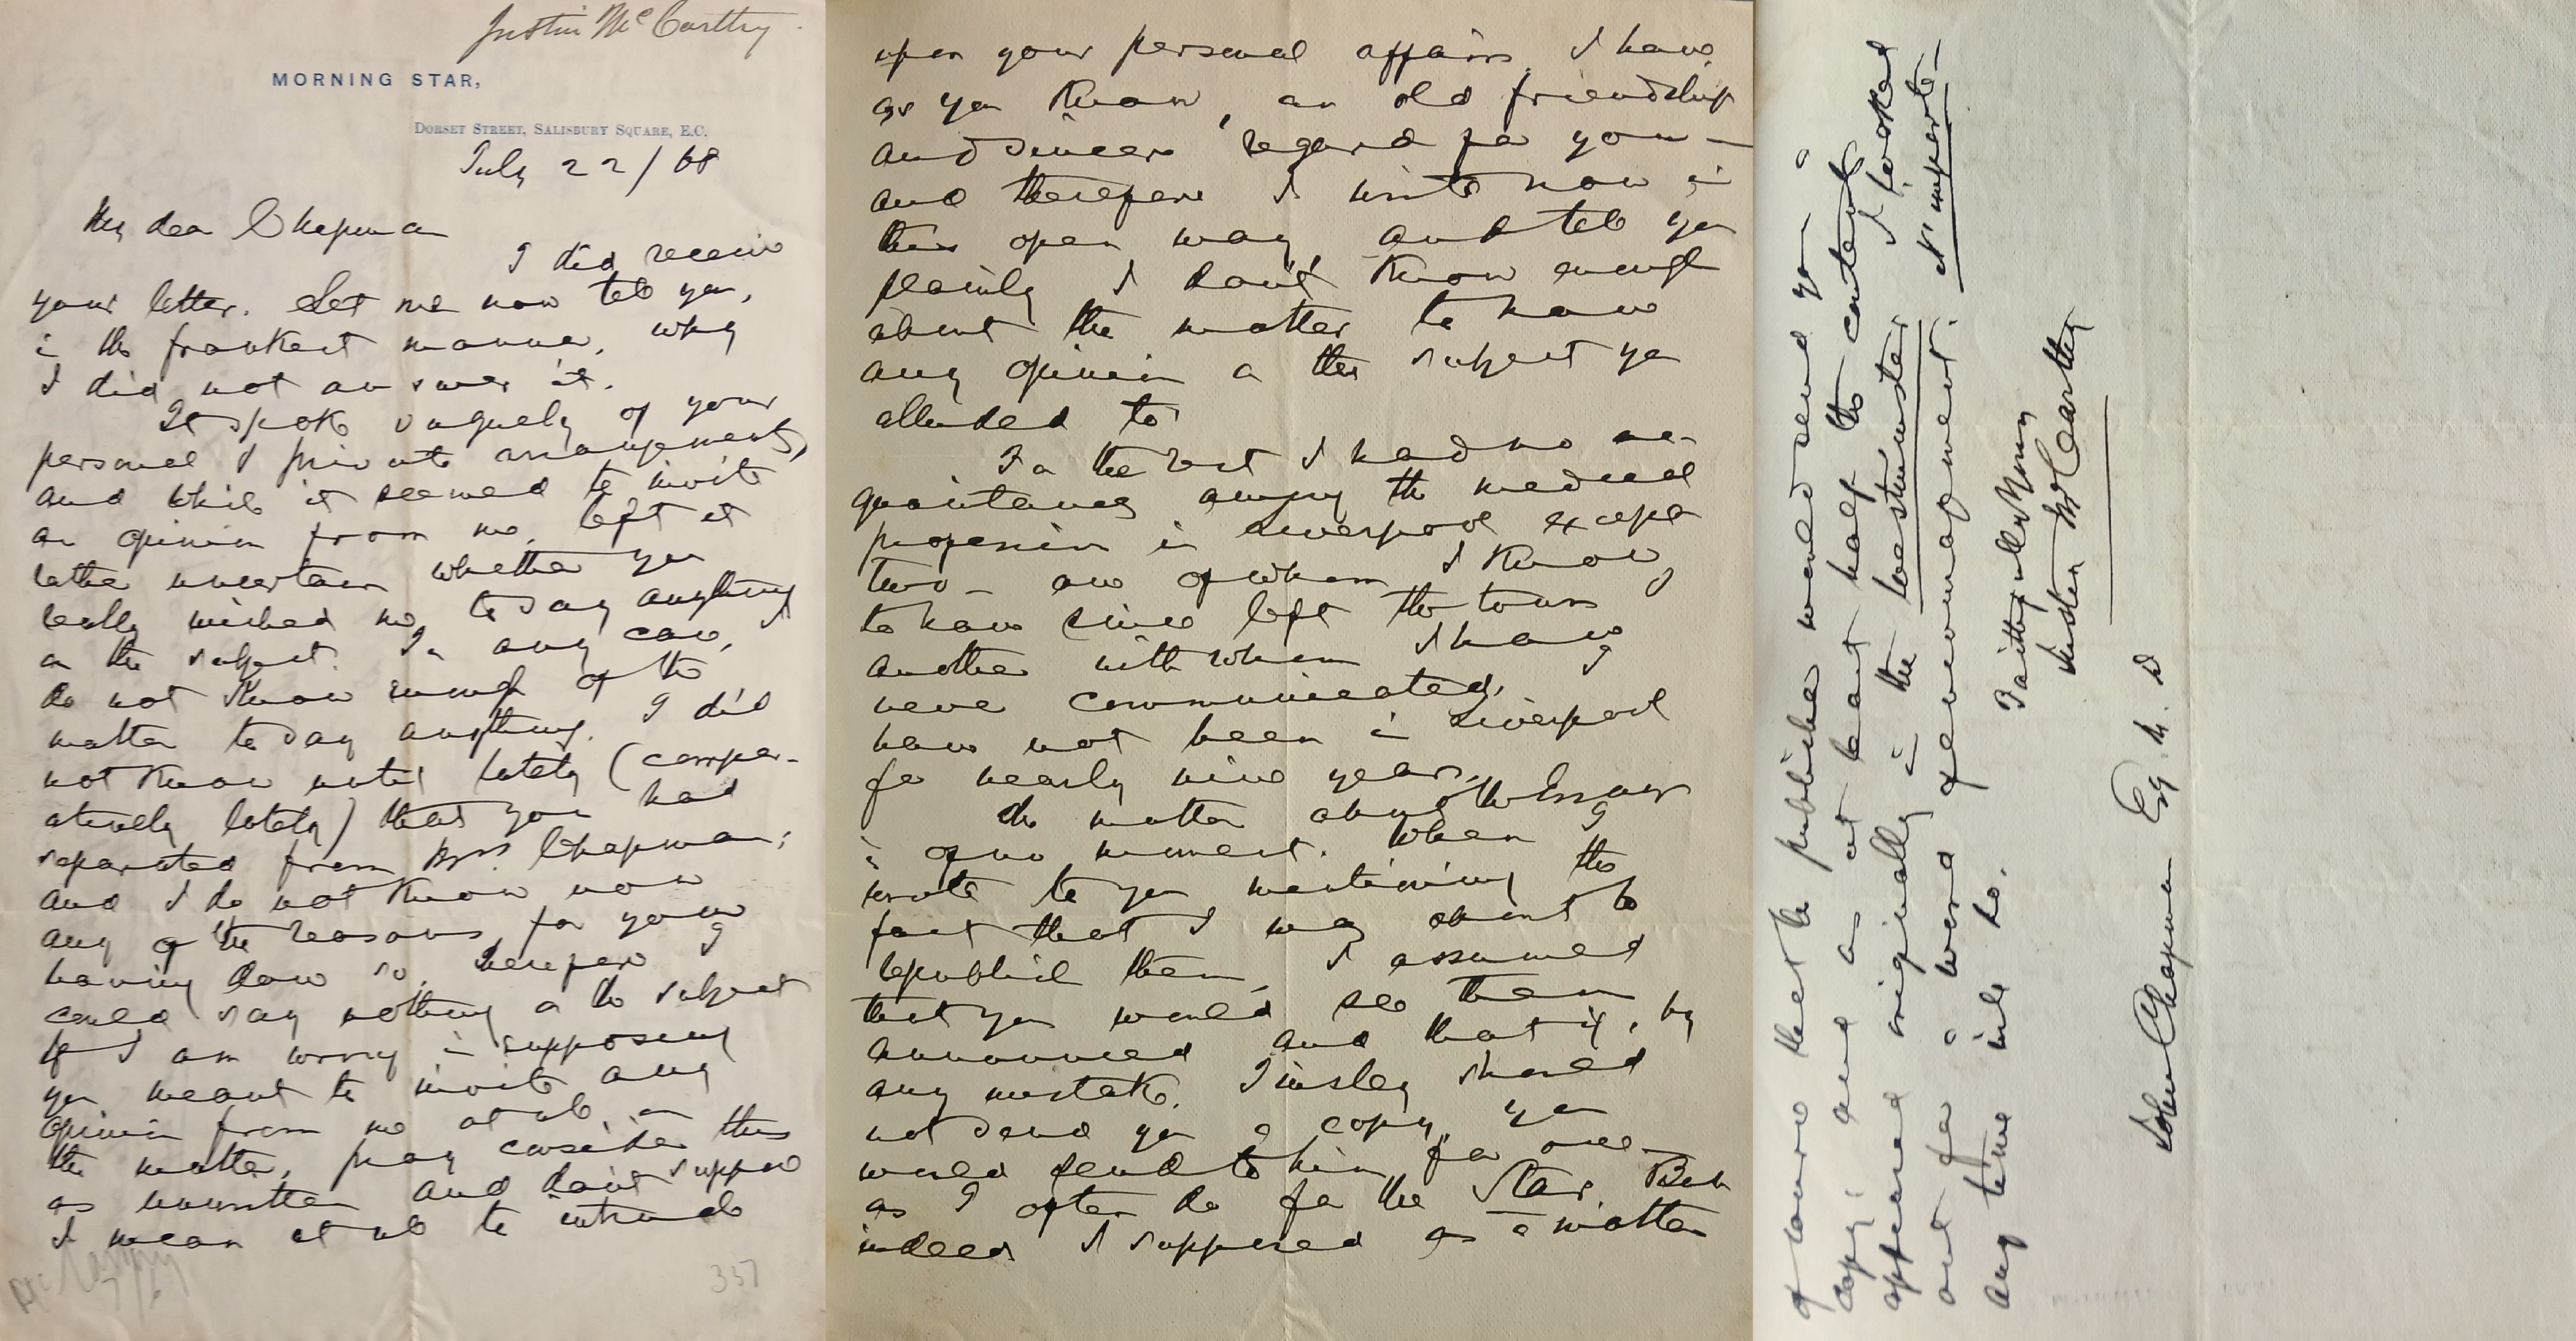 Justin McCarthy.
MORNING STAR,
DORSET STREET, SALISBURY SQUARE, E.C.
July 22/68
My dear Chapman
I did receive
your letter. Let me now tell you,
in the frankest manner, why
I did not answer it.
It spoke vaguely of your
personal & private arrangements,
and while it seemed to invite
an opinion from me, left it
rather uncertain whether you
really wished me to say anything
on the subject. In any case, I
do not know enough of the
matter to say anything. I did
not know until lately (compar-
atively lately) that you had
separated from Mrs Chapman;
and I do not know now
any of the reasons for your
having done so. Therefore I
could say nothing on the subject
If I am wrong in supposing
you meant to invite any
opinion from me at all on
the matter, pray consider this
as unwritten and don't suppose
I mean at all to intrude
337
upon your personal affairs. I have,
as you know, an old friendship
and sincere regard for you —
and therefore I write now in
this open way, and tell you
plainly I don't know enough
about the matter to have
any opinion on the subject you
alluded to.
For the rest I had no ac-
quaintances among the medical
profession in Liverpool except
two — one of whom I know
to have since left the town
another with whom I have
never communicated. I
have not been in Liverpool
for nearly nine years.
The matter about the Essays
is of no moment. When I
wrote to you mentioning the
fact that I was about to
republish them, I assumed
that you would see them
announced and that if, by
any mistake, Tinsley should
not send you a copy, you
would send to him for one —
as I often do for the Star. But
indeed I supposed as a matter
of course that the publisher would send you a
copy; and as at least half the contents
appeared originally in the Westminster I looked
out for a word of encouragement. N'importe —
any time will do.
Faithfully Yours
Justin McCarthy
John Chapman Esq. M.D